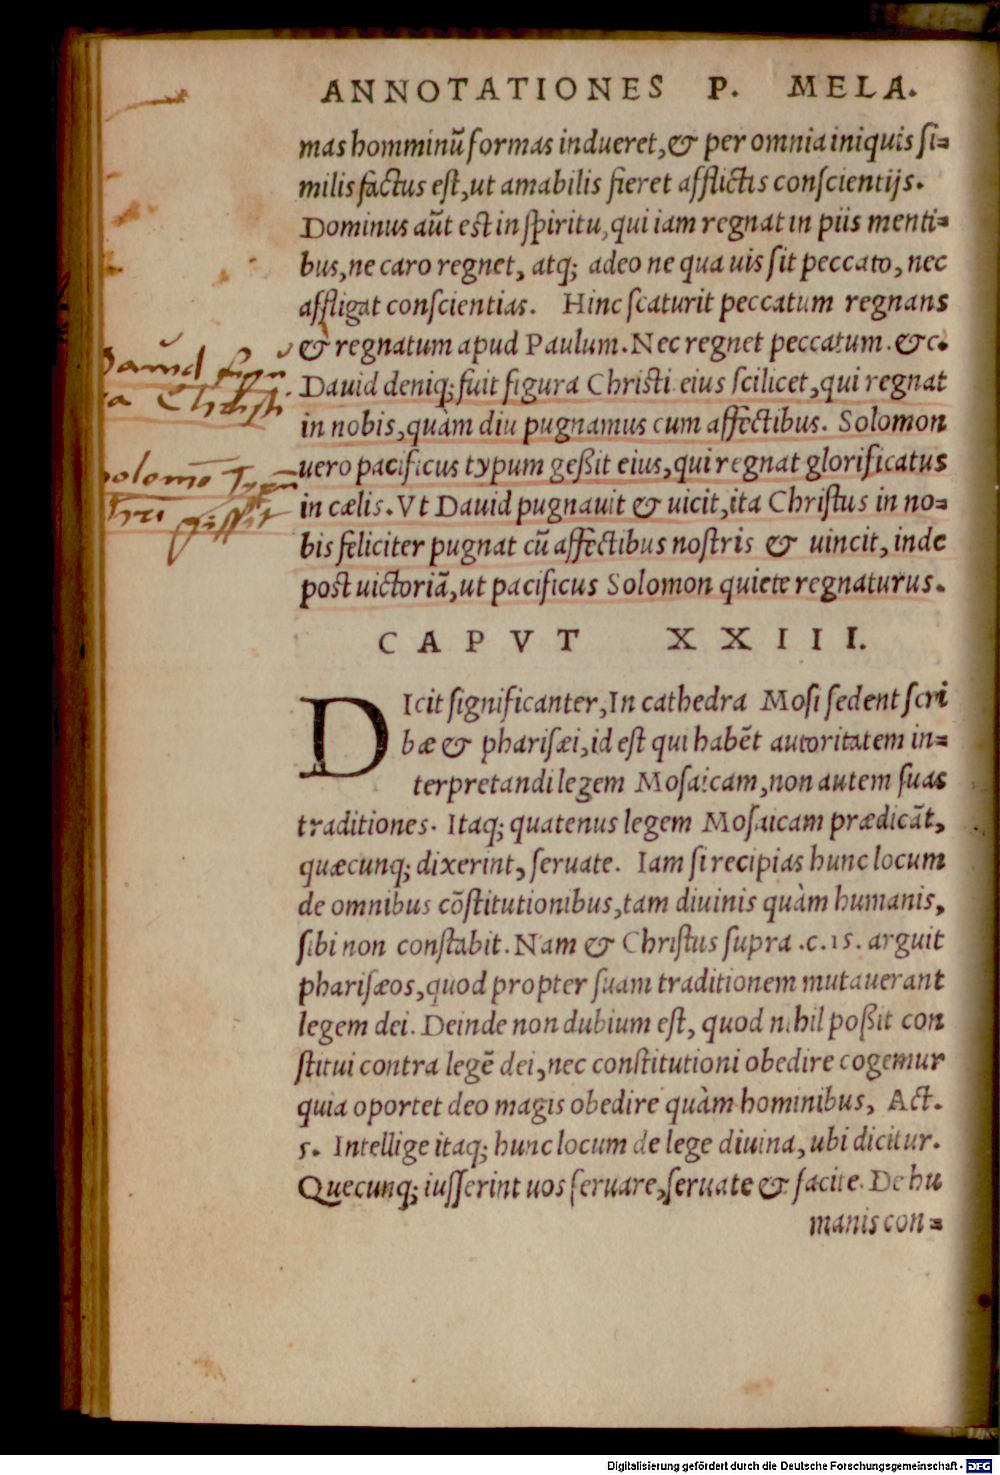 ANNOTATIONES P. MELA.
mas homminũ formas indueret, & per omnia iniquis si=
milis factus est, ut amabilis fieret afflictis conscientijs.
Dominus aũt est in spiritu, qui iam regnat in piis menti=
bus, ne caro regnet, atq; adeo ne qua uis sit peccato, nec
affligat conscientias. Hinc scaturit peccatum regnans
& regnatum apud Paulum. Nec regnet peccatum. &c.
Dauid deniq; fuit figura Christi eius scilicet, qui regnat
in nobis, quàm diu pugnamus cum affectibus. Solomon
uero pacificus typum geßit eius, qui regnat glorificatus
in cælis. Vt Dauid pugnauit & uicit, ita Christus in no=
bis feliciter pugnat cũ affectibus nostris & uincit, inde
post uictoriã, ut pacificus Solomon quiete regnaturus.
Dauid figu
ra Christi
Solomõ Typũ
gessit
CAPVT XXIII.
DIcit significanter, In cathedra Mosi sedent scri
bæ & pharisæi, id est qui habẽt autoritatem in=
terpretandi legem Mosaicam, non autem suas
traditiones. Itaq; quatenus legem Mosaicam prædicãt,
quæcunq; dixerint, seruate. Iam si recipias hunc locum
de omnibus cõstitutionibus, tam diuinis quàm humanis,
sibi non constabit. Nam & Christus supra .c.15. arguit
pharisæos, quod propter suam traditionem mutauerant
legem dei. Deinde non dubium est, quod nihil poßit con
stitui contra legẽ dei, nec constitutioni obedire cogemur
quia oportet deo magis obedire quàm hominibus, Act.
5. Intellige itaq; hunc locum de lege diuina, ubi dicitur.
Quecunq; iusserint uos seruare, seruate & facite. De hu
manis con=
Digitalisierung gefördert durch die Deutsche Forschungsgemeinschaft - DFG